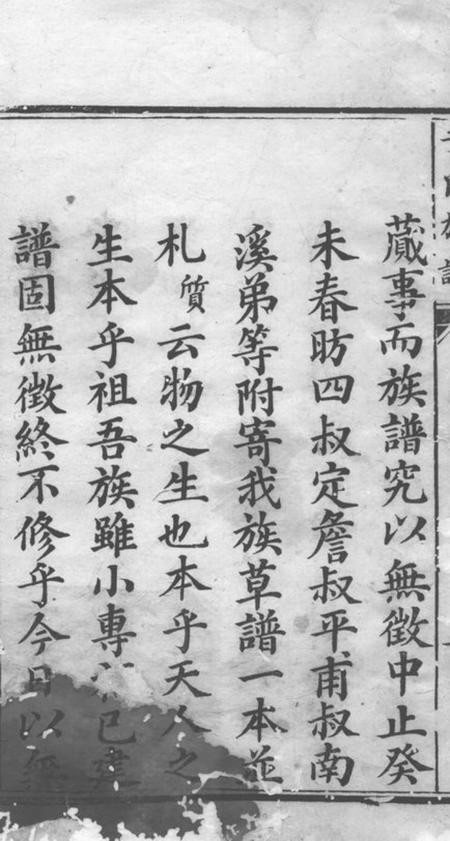 蕆事而族譜究以無徵中止癸
未春昉四叔定詹叔平甫叔南
溪弟等附寄我族草譜一本並
札質云物之生也本乎天人之
生本乎祖吾族雖小專已建
譜固無徵終不修乎今日以無
族譜